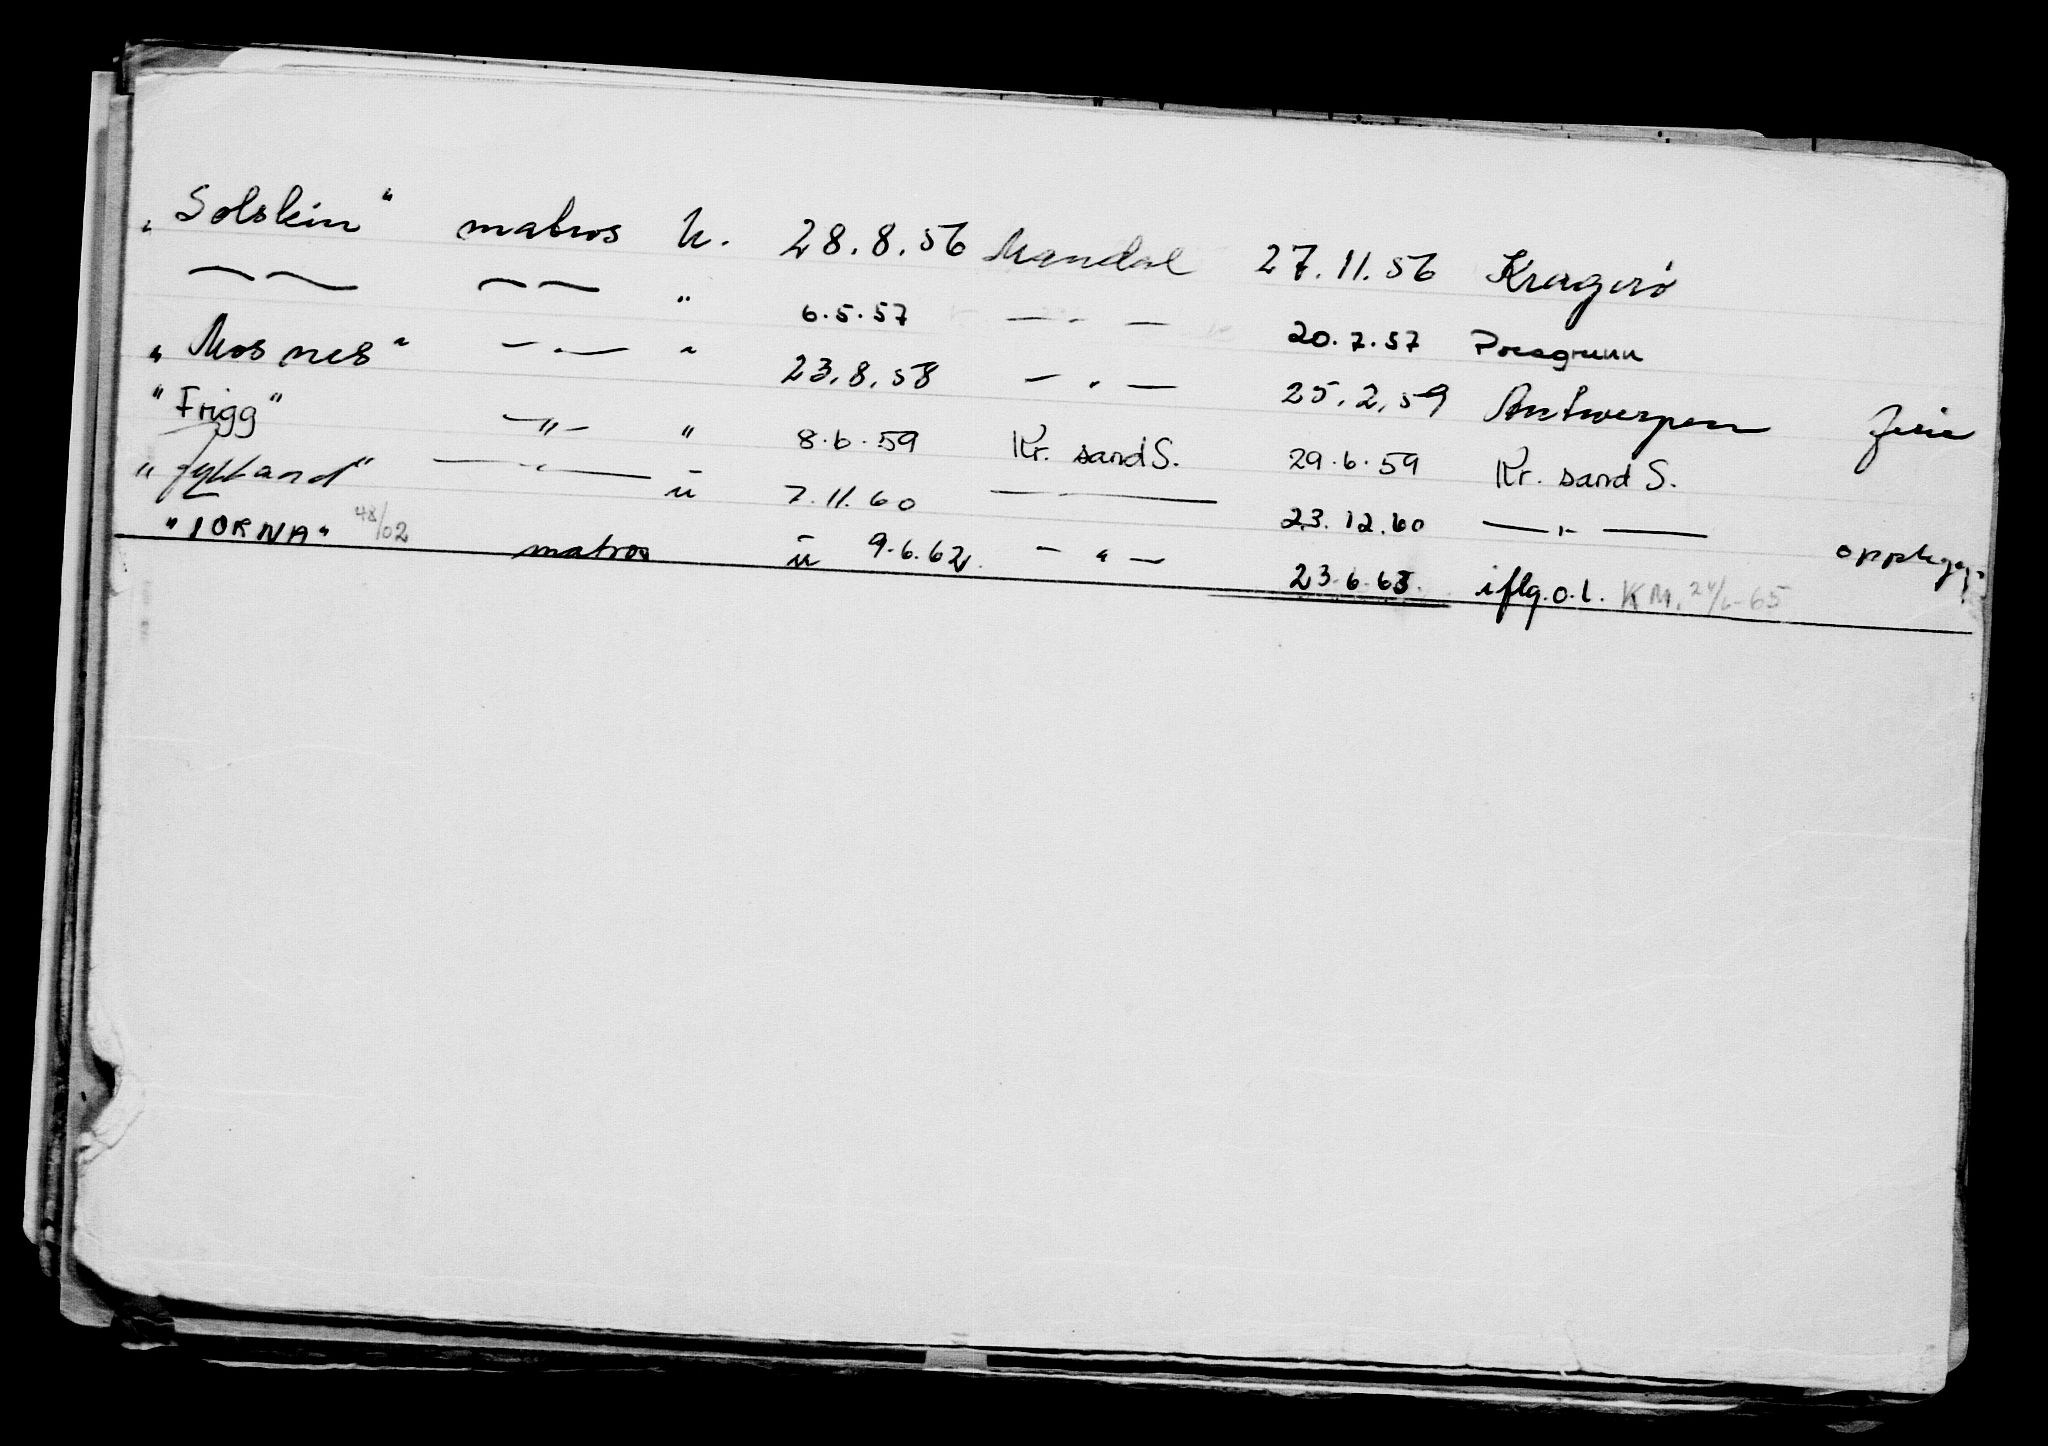 "Solskin" matros u. 28.8.56 Mandal 27.11.56 Kragerø
— — — — " 6.5.57 — " — 20.7.57 Porsgrunn
"Mosnes" — " — " 23.8.58 — " — 25.2.59 Antwerpen ferie
"Frigg" — " — " 8.6.59 Kr. sand S. 29.6.59 Kr. sand S.
"Jylland" — " — u 7.11.60 — 23.12.60 — " — opplegg
"TORNA" 48/02 matros u 9.6.62 — " — 23.6.63. iflg. o.l. KM. -65